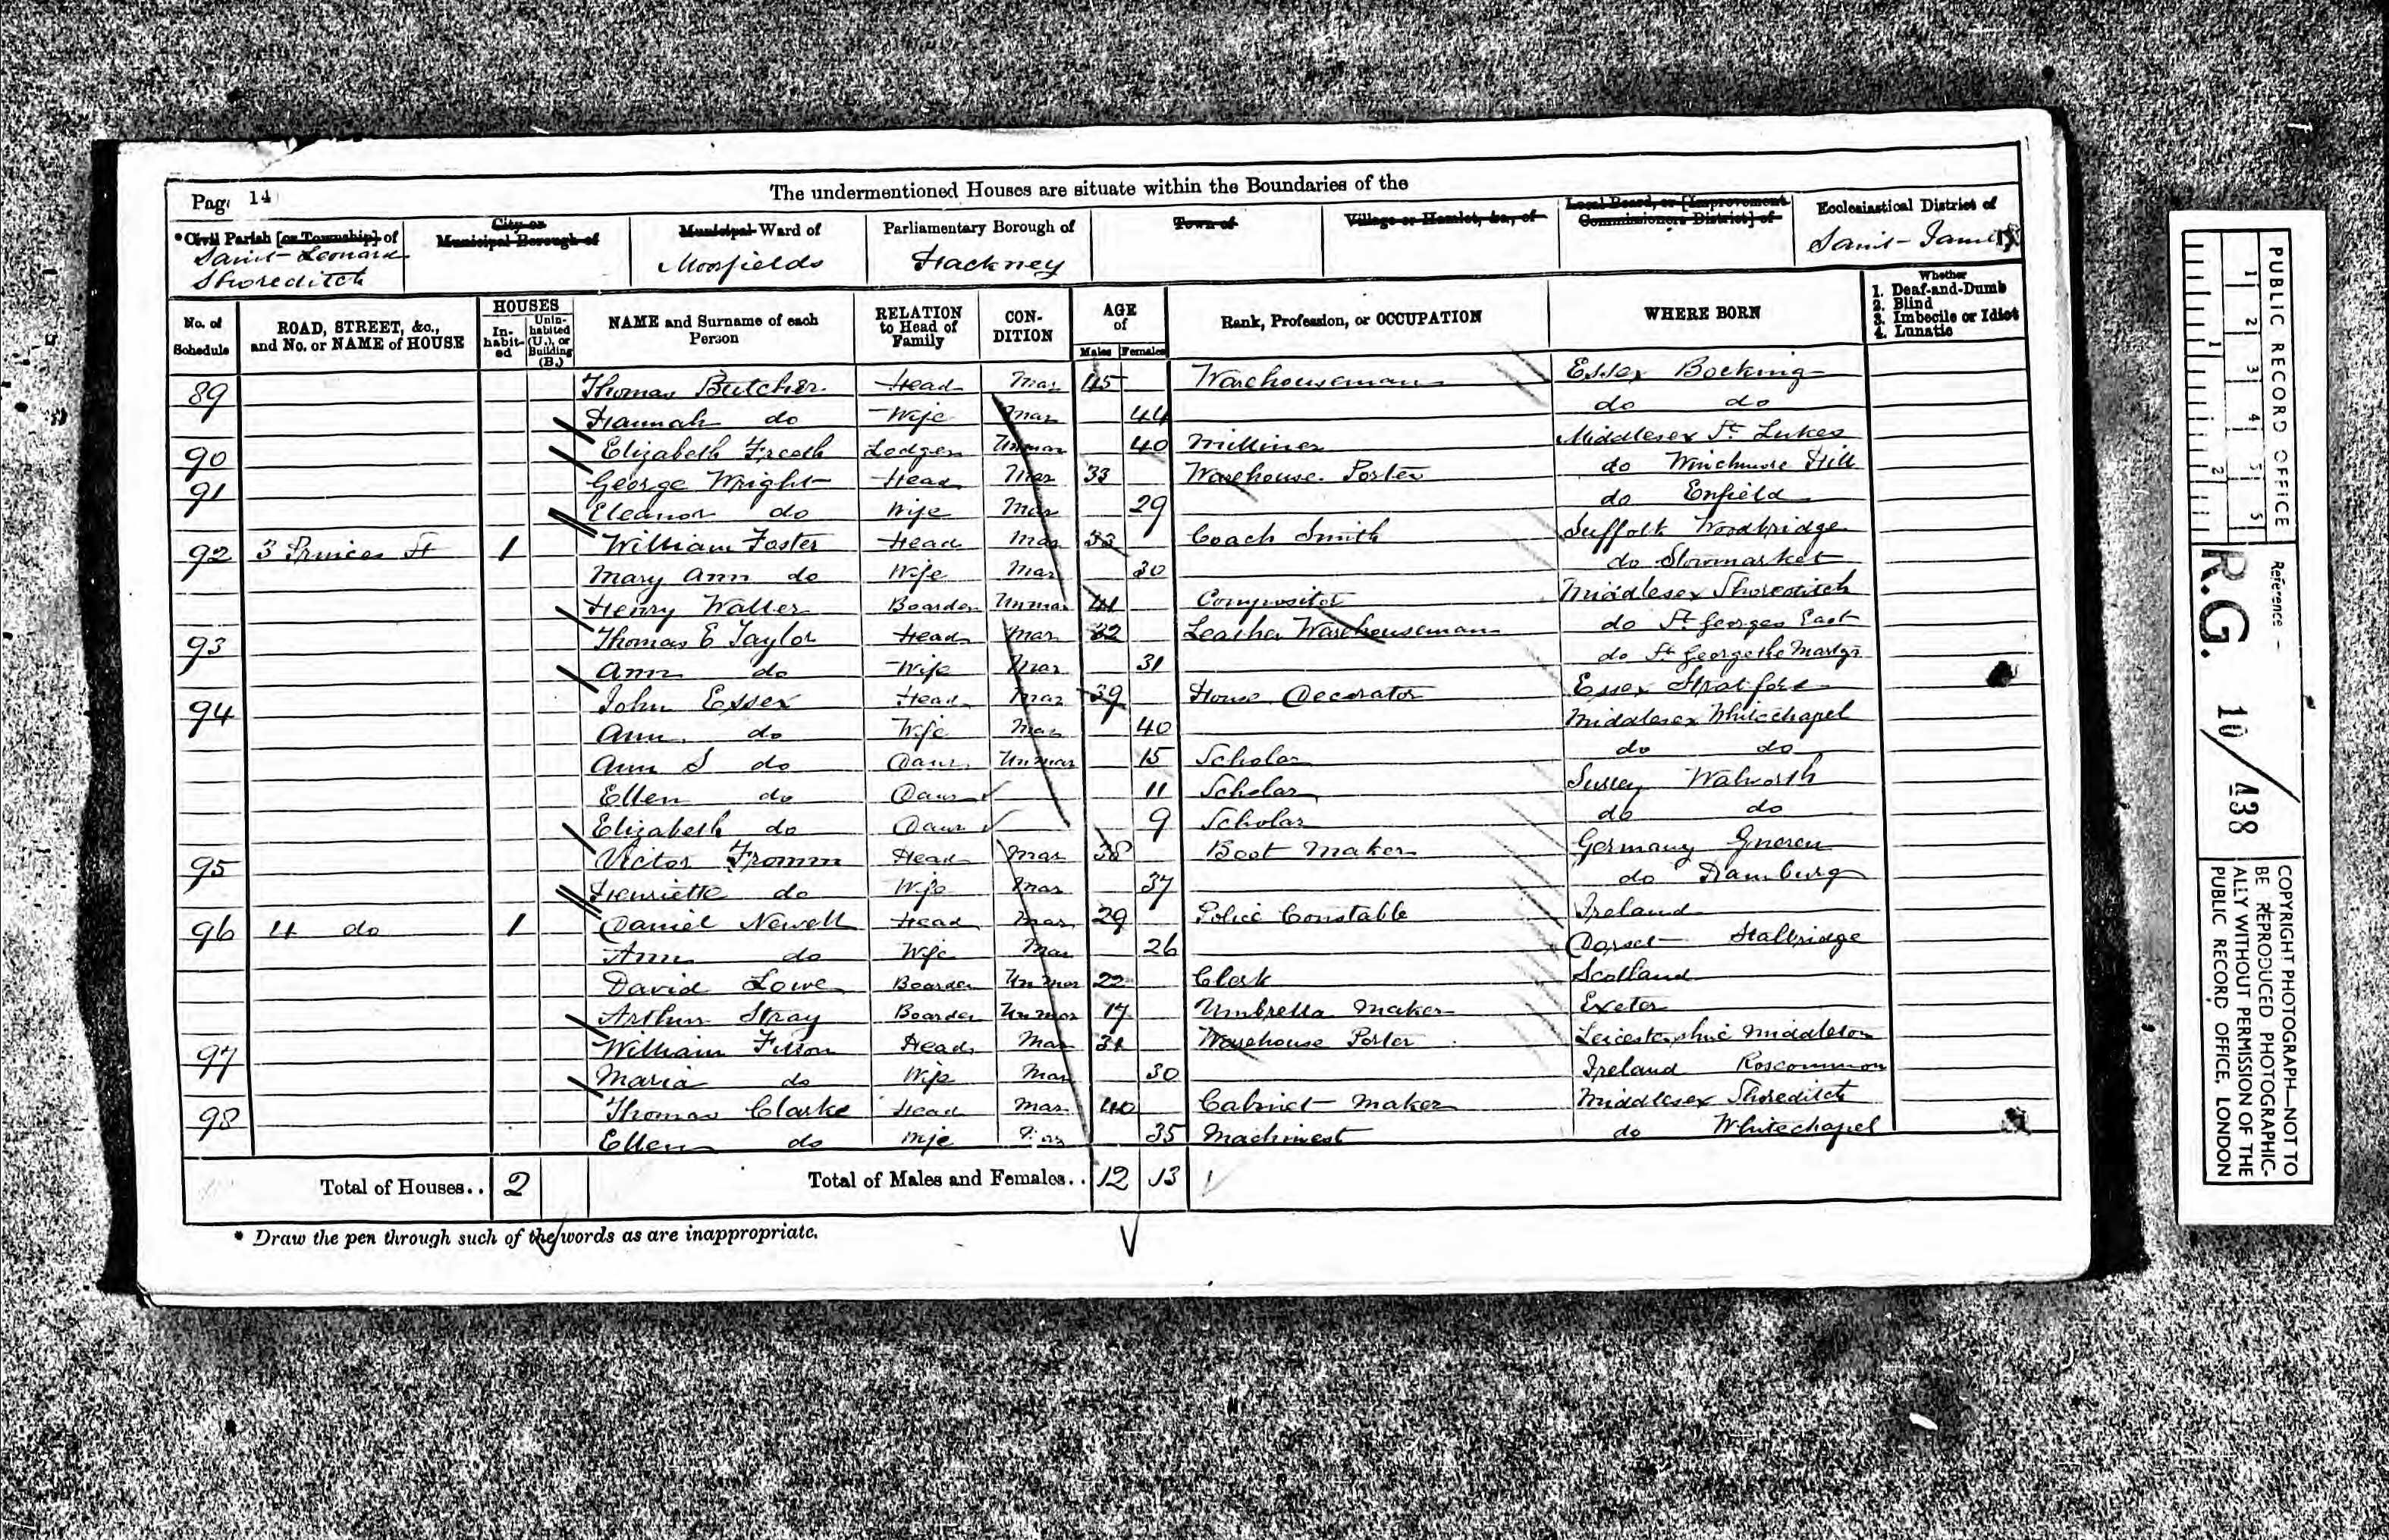 Page 14
The undermentioned Houses are situate within the Boundaries of the
*Civil Parish [or Township] of
Saint Leonard
Shoreditch
City or
Municipal Borough of
Municipal Ward of
Moorfields
Parliamentary Borough of
Hackney
Town of
Village or Hamlet, &c., of
Local Board, or [Improvement
Commissioners District] of
Ecclesiastical District of
Saint James
No. of Schedule
ROAD, STREET, &c., and No. or NAME of HOUSE
HOUSES
In-habit-ed
Unin-habited (U.), or Building (B.)
NAME and Surname of each Person
RELATION to Head of Family
CON-DITION
AGE of
Males Females
Rank, Profession, or OCCUPATION
WHERE BORN
Whether
1. Deaf-and-Dumb
2. Blind
3. Imbecile or Idiot
4. Lunatic
89 Thomas Butcher Head Mar 45 Warehouseman Essex Bocking
Hannah do Wife Mar 44 do do
90 Elizabeth Freeth Lodger Unmar 40 Milliner Middlesex St. Lukes
91 George Wright Head Mar 33 Warehouse Porter do Winchmore Hill
Eleanor do Wife Mar 29 do Enfield
92 3 Princes St 1 William Foster Head Mar 33 Coach Smith Suffolk Woodbridge
Mary Ann do Wife Mar 30 do Stowmarket
Henry Waller Boarder Unmar 41 Compositor Middlesex Shoreditch
93 Thomas E Taylor Head Mar 32 Leather Warehouseman do St Georges East
Ann do Wife Mar 31 do St George the Martyr
94 John Essex Head Mar 39 House Decorator Essex Stratford
Ann do Wife Mar 40 Middlesex Whitechapel
Ann S do Daur Unmar 15 Scholar do do
Ellen do Daur 11 Scholar Surrey Walworth
Elizabeth do Daur 9 Scholar do do
95 Victor Fromm Head Mar 38 Boot Maker Germany
Henriette do Wife Mar 37 do Hamburg
96 4 do 1 Daniel Newell Head Mar 29 Police Constable Ireland
Ann do Wife Mar 26 Dorset Stalbridge
David Lowe Boarder Unmar 22 Clerk Scotland
Arthur Stray Boarder Unmar 17 Umbrella Maker Exeter
97 William Head Mar 31 Warehouse Porter Leicestershire Middleton
Maria do Wife Mar 30 Ireland Roscommon
98 Thomas Clarke Head Mar 40 Cabinet Maker Middlesex Shoreditch
Ellen do Wife Mar 35 Machinest do Whitechapel
Total of Houses.. 2 Total of Males and Females.. 12 13
* Draw the pen through such of the words as are inappropriate.
PUBLIC RECORD OFFICE
1 2 3 4 5 6
1 2
Reference -
R.G. 10/438
COPYRIGHT PHOTOGRAPH—NOT TO
BE REPRODUCED PHOTOGRAPHIC-
ALLY WITHOUT PERMISSION OF THE
PUBLIC RECORD OFFICE, LONDON